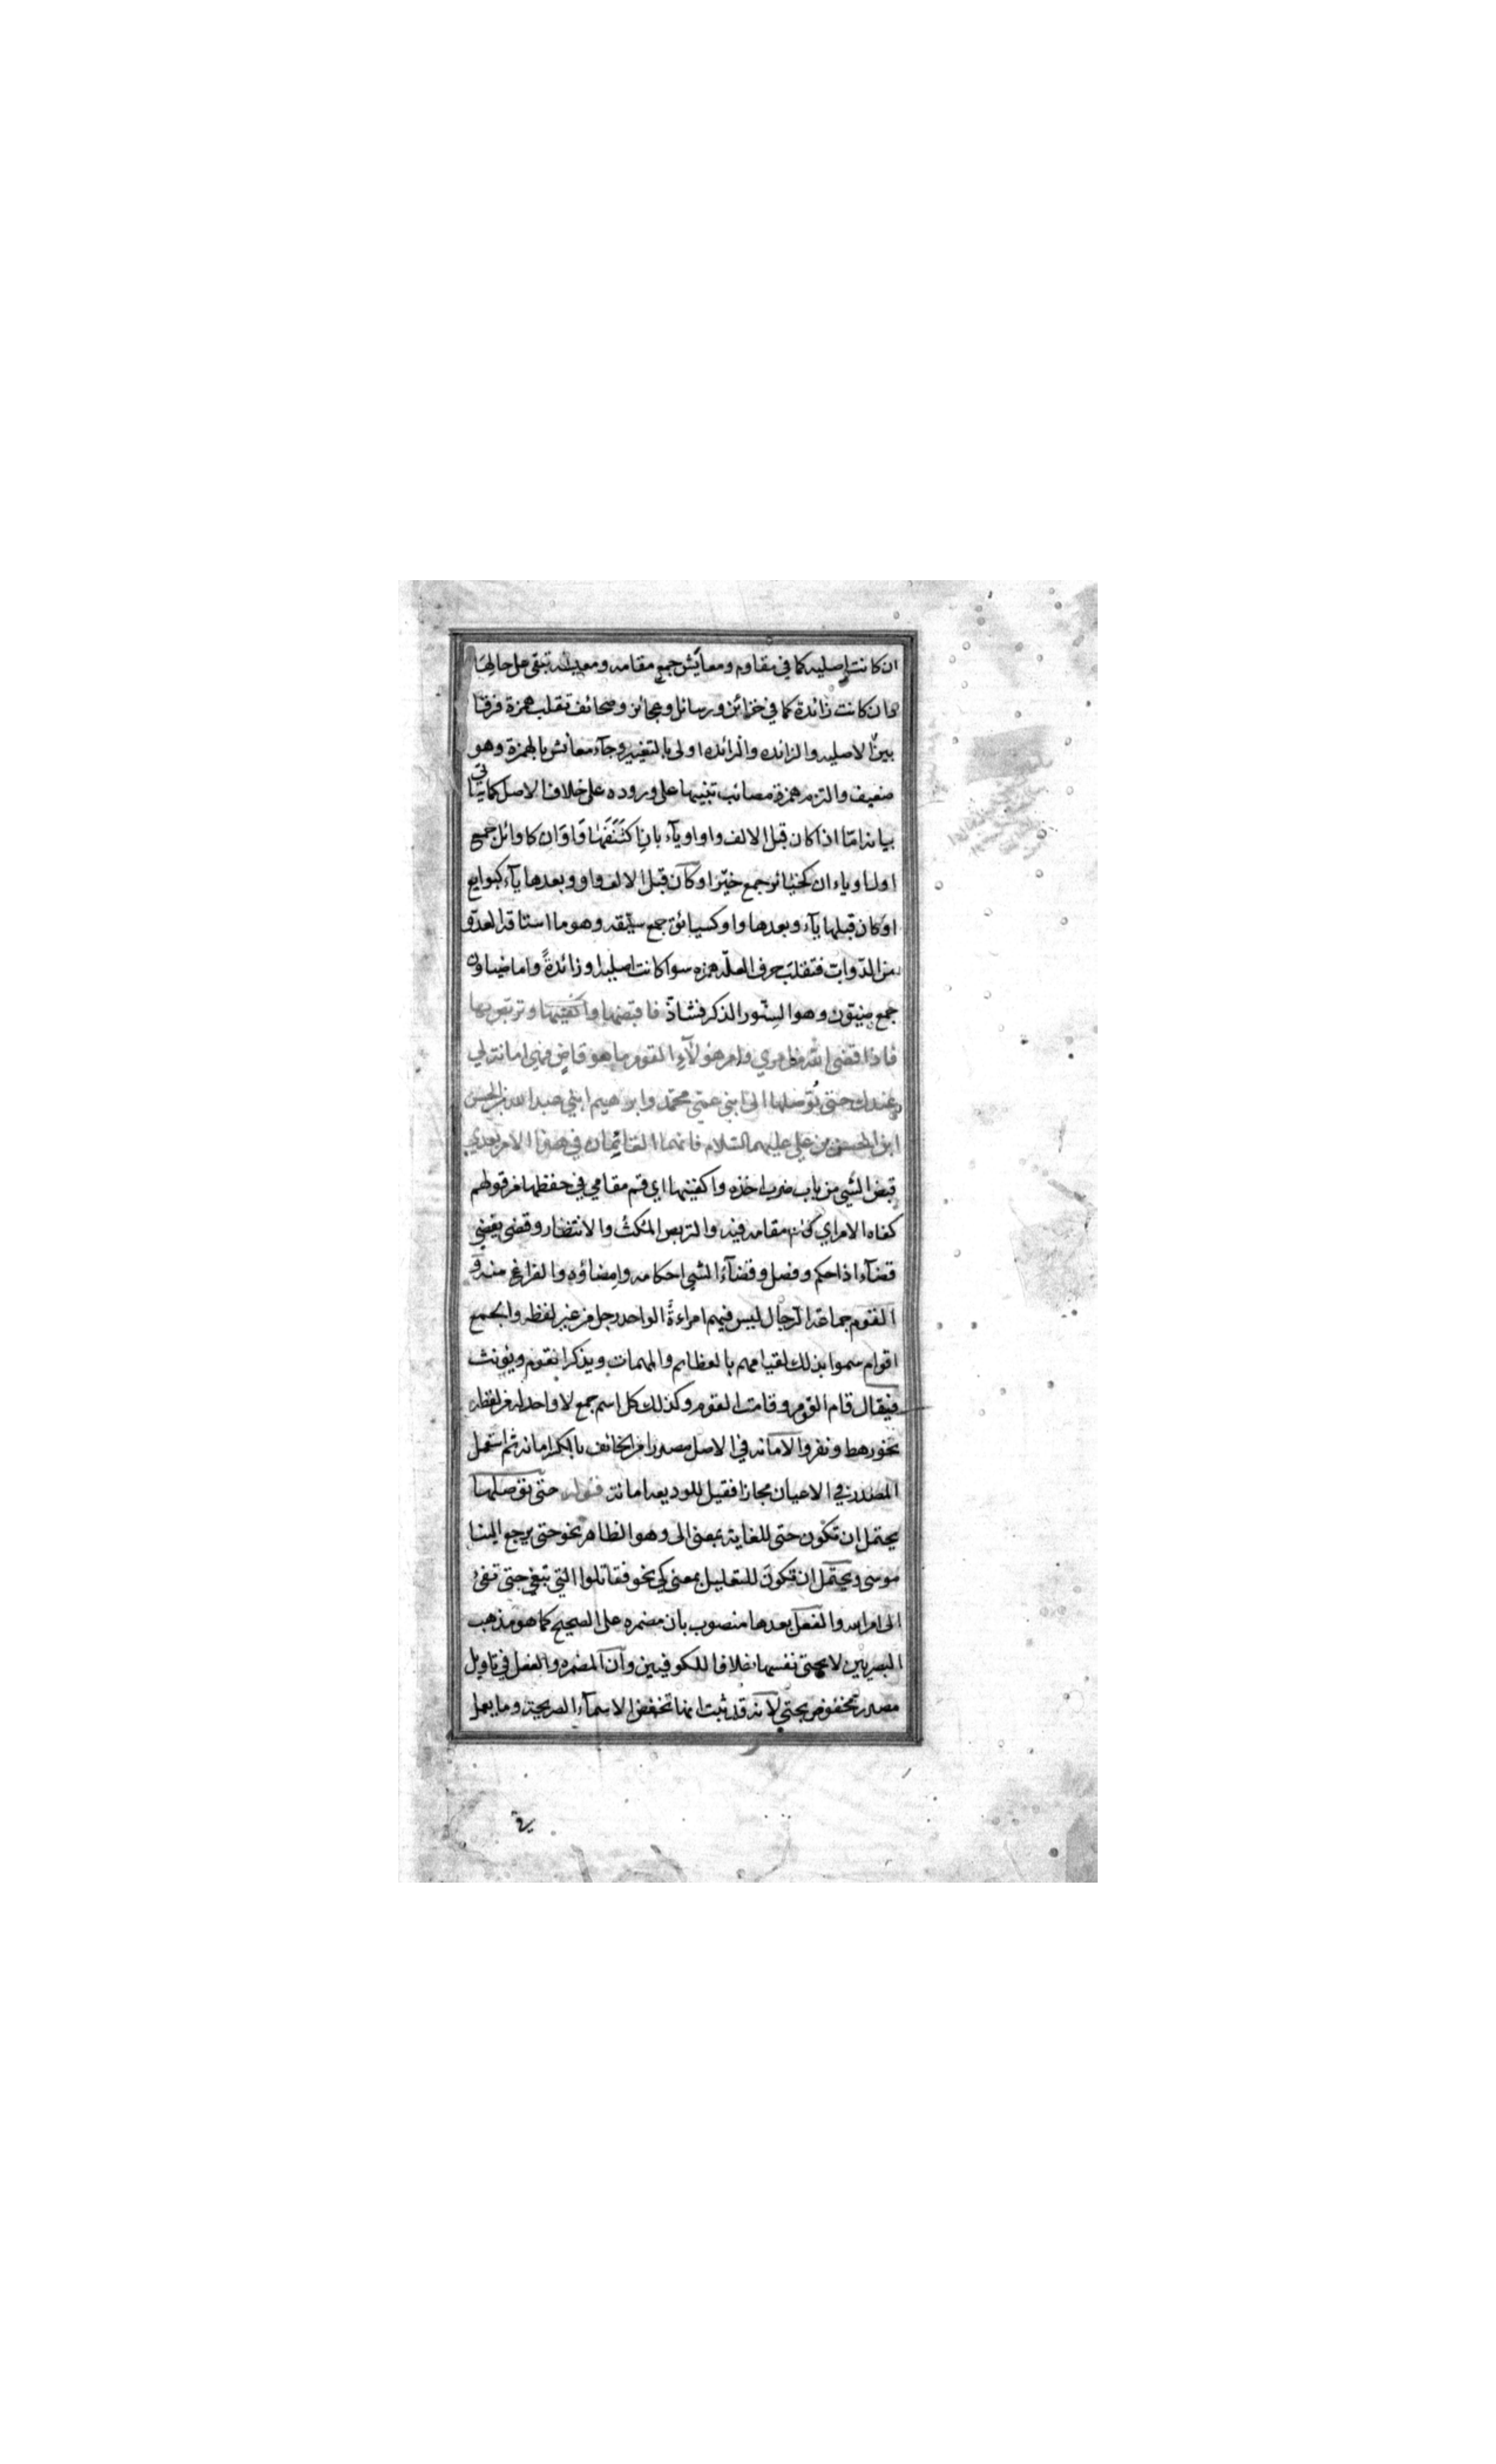 ان كانت اصليه كما في مقاوم ومعايش جمع مقامه ومعيشه تبقى على حالها
وان كانت زائدة كما في خزائن ورسائل وعجائز وصحائف تقلب همزة فرقا
بين الاصليه والزائده والزائده اولى بالتغيير وجآء معائش بالهمزة وهو
ضعيف والتزم همزة مصائب تنبيها على وروده على خلاف الاصل كما ياتي
بيانه امّا اذا كان قبل الالف واو او يآء بان اكتنفها واوان كاوائل جمع
اول او ياءان كخيائر جمع خيّر او كان قبل الالف واو وبعدها يآء كبوايع
او كان قبلها يآء وبعدها واو كسيائق جمع سيّقه وهو ما استاقه العدوّ
من الدّوابّ فتقلب حرف العلّه همزه سوا كانت اصليه او زائدةً واما ضياون
جمع ضيون وهو السنّور الذكر فشاذّ فاقبضها واكفنيها وتربّص بها
فاذا قضى الله من امري وامر هؤلآء القوم ما هو قاضٍ فهي امانة لي
عندك حتى تُوصلها الى ابني عمّي محمّد وابرهيم ابني عبد الله بن الحسن
ابن الحسن بن علي عليهما السّلام فانهما القائمان في هذا الامر بعدي
قبض الشّي من باب ضرب اخذه واكفنيها اي قم مقامي في حفظها من قولهم
كفاه الامر اي قام مقامه فيه والتربص المكث والانتظار وقضى يقضي
قضآء اذا حكم وفصل وقضآء الشي احكامه وامضاؤه والفراغ منه و
القوم جماعة الرّجال ليس فيهم امراءةٌ الواحد رجل من غير لفظه والجمع
اقوام سموا بذلك لقيامهم بالعظايم والمهمات ويذكر القوم ويؤنث
فيقال قام القوم وقامت القوم وكذلك كل اسم جمع لا واحد له من لفظه
نحو رهط ونفر والامانه في الاصل مصدر امن الخائف بالكسر امانه ثم استعمل
المصدر في الاعيان مجازا فقيل للوديعه امانة قوله حتى توصلها
يحتمل ان تكون حتى للغاية بمعنى الى وهو الظاهر نحو حتى يرجع الينا
موسى ويحتمل ان تكون للتعليل بمعنى كي نحو فقاتلوا التي تبغي حتى تفئ
الى امر الله والفعل بعدها منصوب بان مضمره على الصحيح كما هو مذهب
البصريين لا بحتى نفسها خلافا للكوفيين وان المضمره والفعل في تاويل
مصدر مخفوض بحتى لانه قد ثبت انها تخفض الاسمآء الصريحة وما يعمل
في